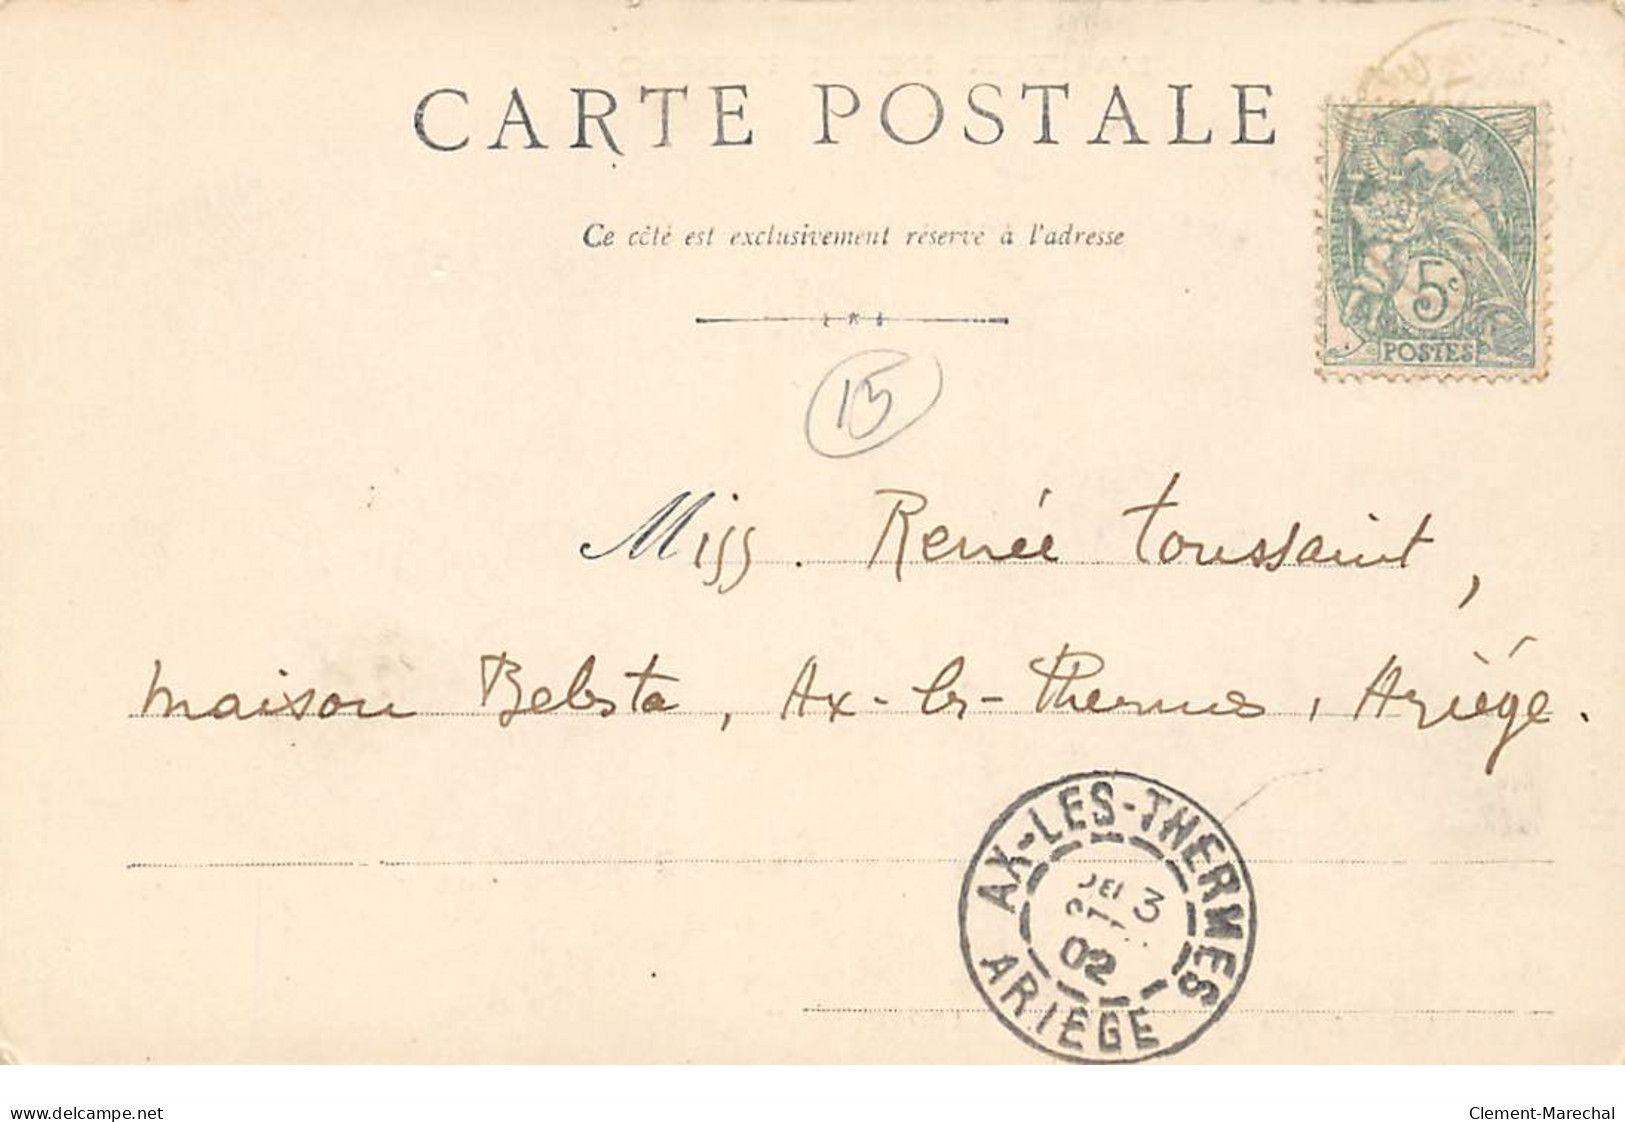 CARTE POSTALE
Ce côté est exclusivement réservé à l'adresse
5c
POSTES
15
Miss. Renée Toussaint,
maison Belesta, Ax-les-Thermes, Ariège.
AX-LES-THERMES
3
02
ARIEGE
www.delcampe.net
Clement-Marechal